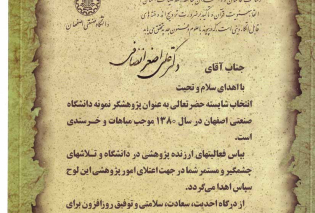 دانشگاه صنعتی اصفهان
جناب آقای
دکتر علی اصغر انصافی
با اهدای سلام و تحیت
انتخاب شایسته حضرتعالی به عنوان پژوهشگر نمونه دانشگاه
صنعتی اصفهان در سال ۱۳۸۰ موجب مباهات و خرسندی
است.
بپاس فعالیتهای ارزنده پژوهشی در دانشگاه و تلاشهای
چشمگیر و مستمر شما در جهت اعتلای امور پژوهشی این لوح
سپاس اهدا می‌گردد.
از درگاه احدیت، سعادت، سلامتی و توفیق روزافزون برای